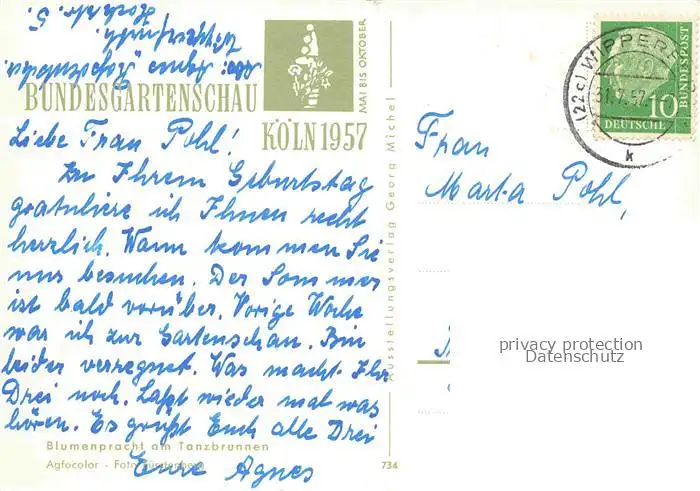 Hochstr. 5.
Wipperfürth
Abs. Agnes
BUNDESGARTENSCHAU
KÖLN 1957
MAI BIS OKTOBER
Liebe Frau Pohl!
Zu Ihrem Geburtstag
gratuliere ich Ihnen recht
herzlich. Wann kommen Sie
uns besuchen. Der Sommer
ist bald vorüber. Vorige Woche
war ich zur Gartenschau. Bin
leider verregnet. Was macht Ihr
Drei noch. Laßt wieder mal was
hören. Es grüßt Euch alle Drei
Eure Agnes
Blumenpracht am Tanzbrunnen
Agfacolor - Foto
734
Ausstellungsverlag Georg Michel
Frau
Marta Pohl,
(22c) WIPPERF
31.7.57
k
10
DEUTSCHE
BUNDESPOST
privacy protection
Datenschutz